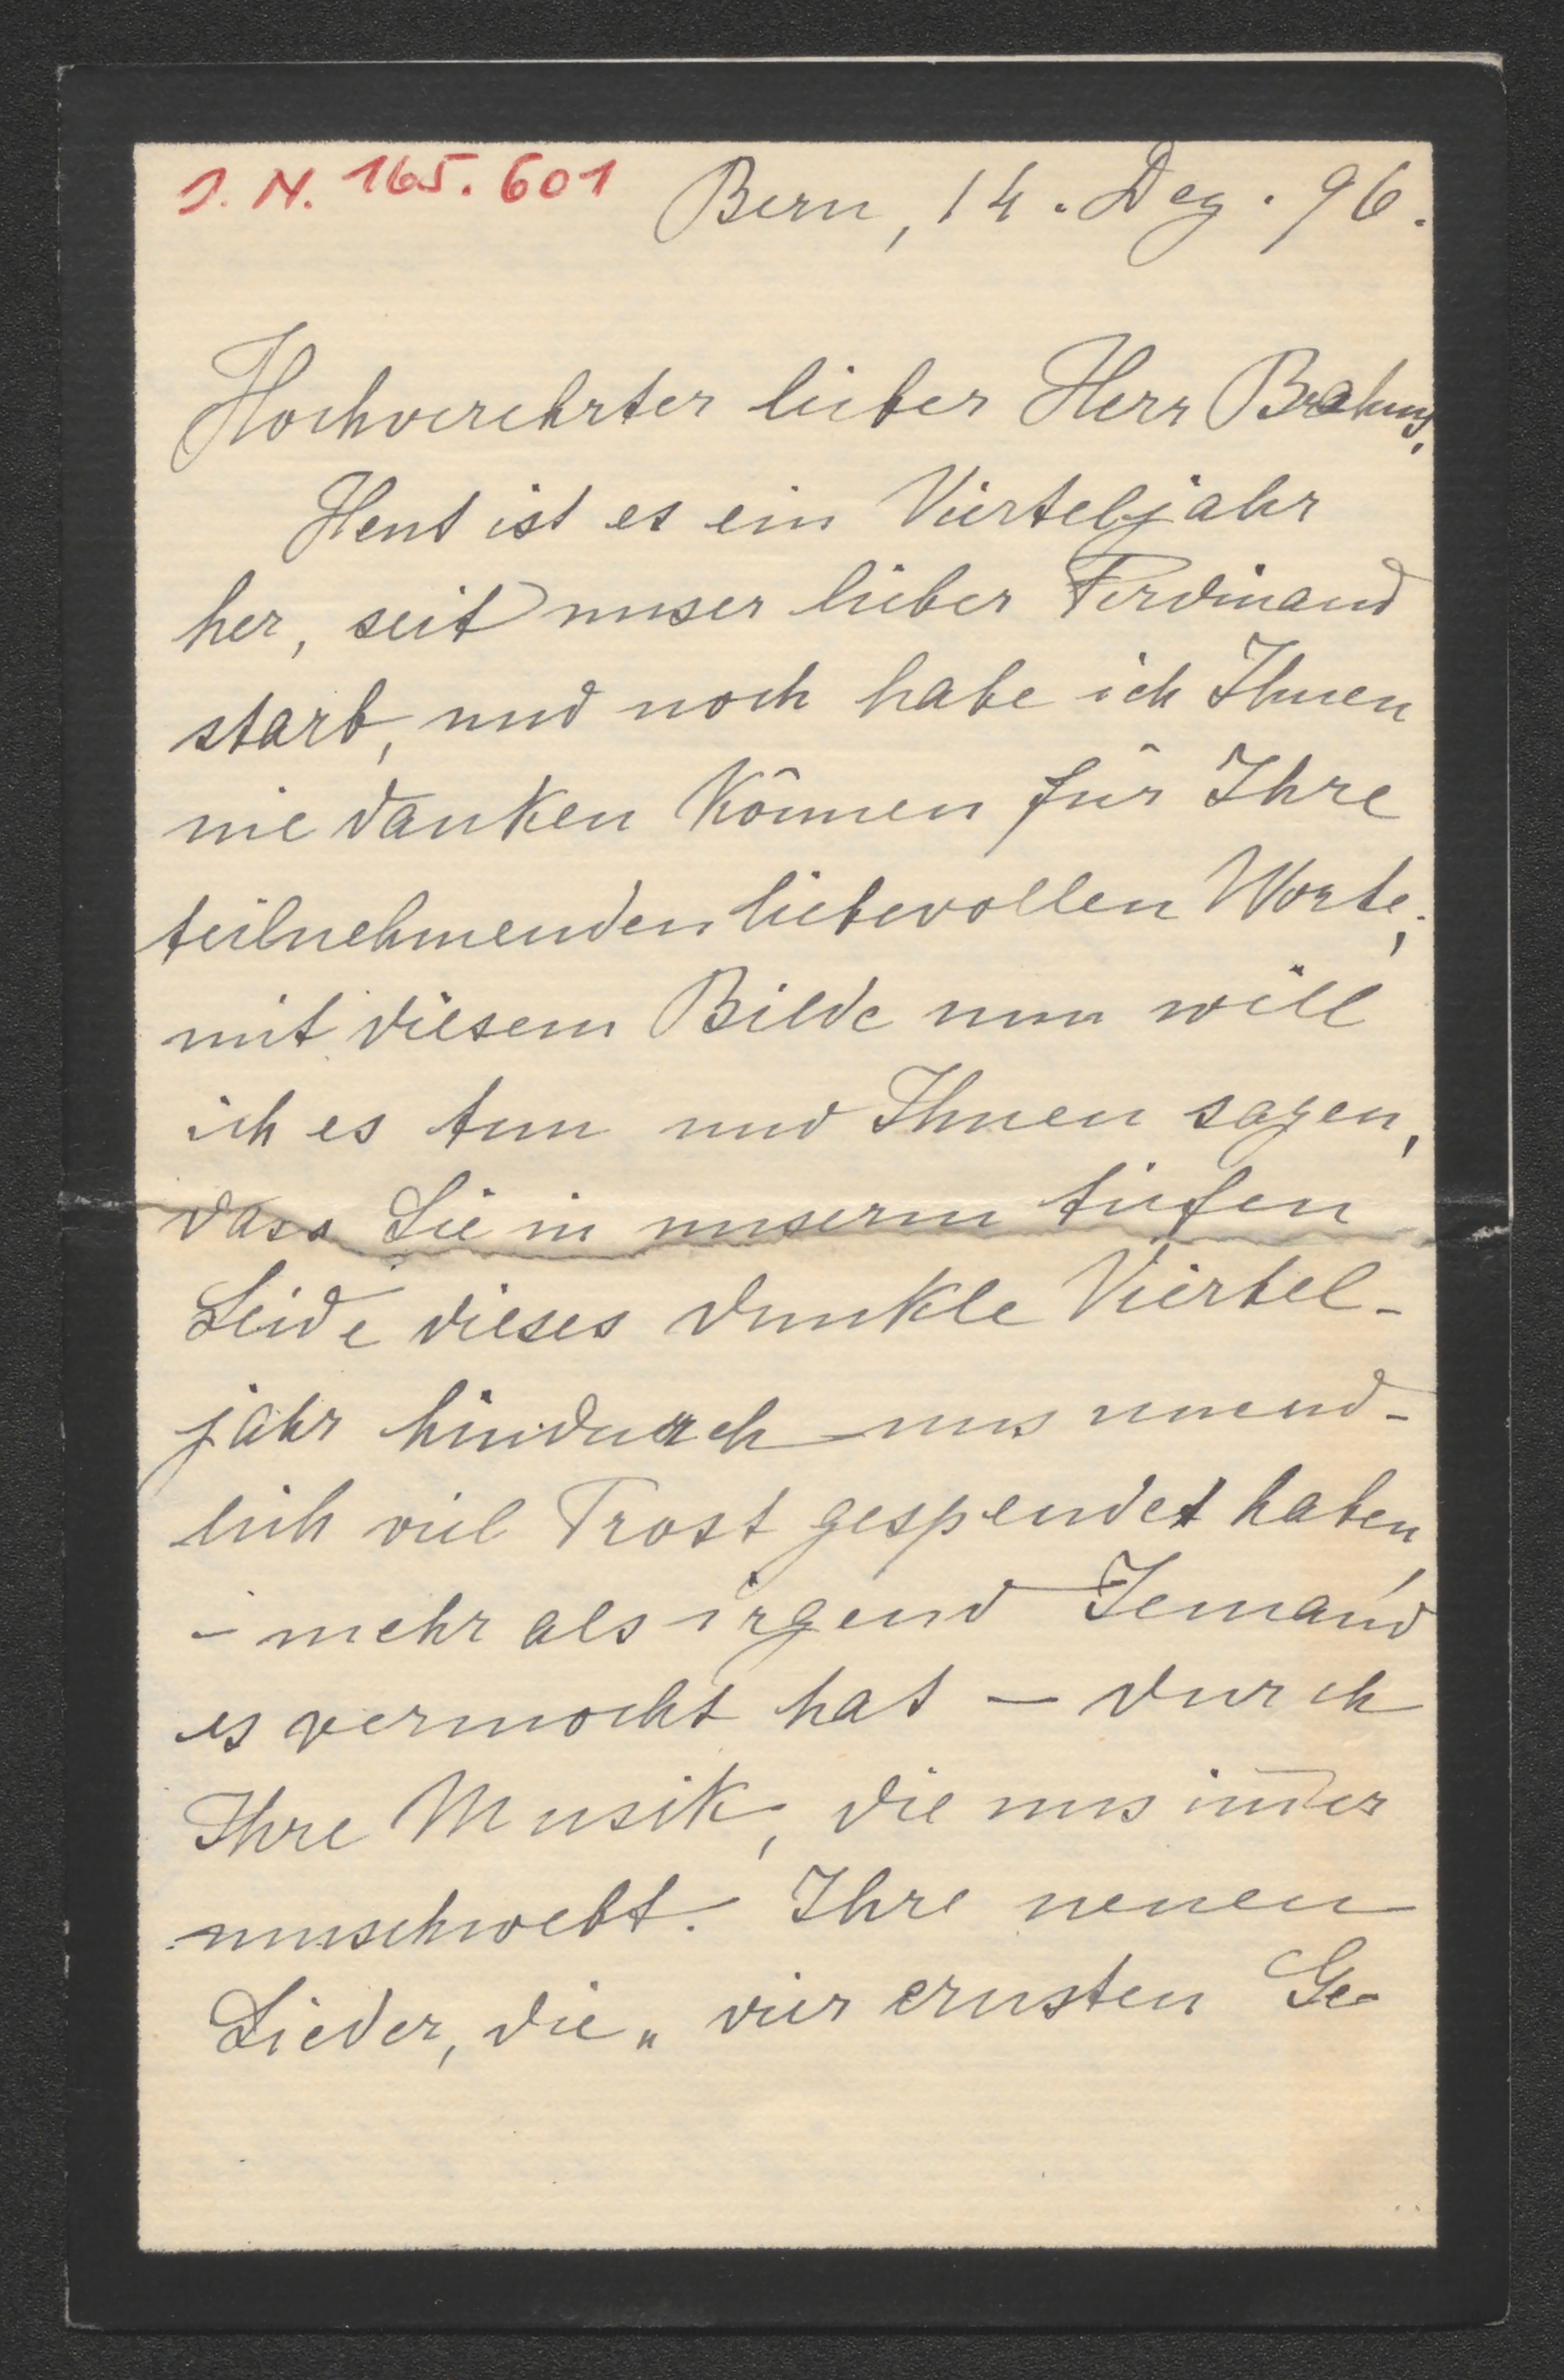 J. N. 165.601
Bern, 14. Dez. 96.
Hochverehrter lieber Herr Brahms,
Heut ist es ein Vierteljahr
her, seit unser lieber Ferdinand
starb, und noch habe ich Ihnen
nie danken können für Ihre
teilnehmenden liebevollen Worte;
mit diesem Bilde nun will
ich es tun und Ihnen sagen,
dass Sie in unserm tiefen
Leide dieses dunkle Viertel-
jahr hindurch uns unend-
lich viel Trost gespendet haben,
– mehr als irgend Jemand
es vermocht hat – durch
Ihre Musik, die uns im̅er
umschwebt. Ihre neuen
Lieder, die „vier ernsten Ge-